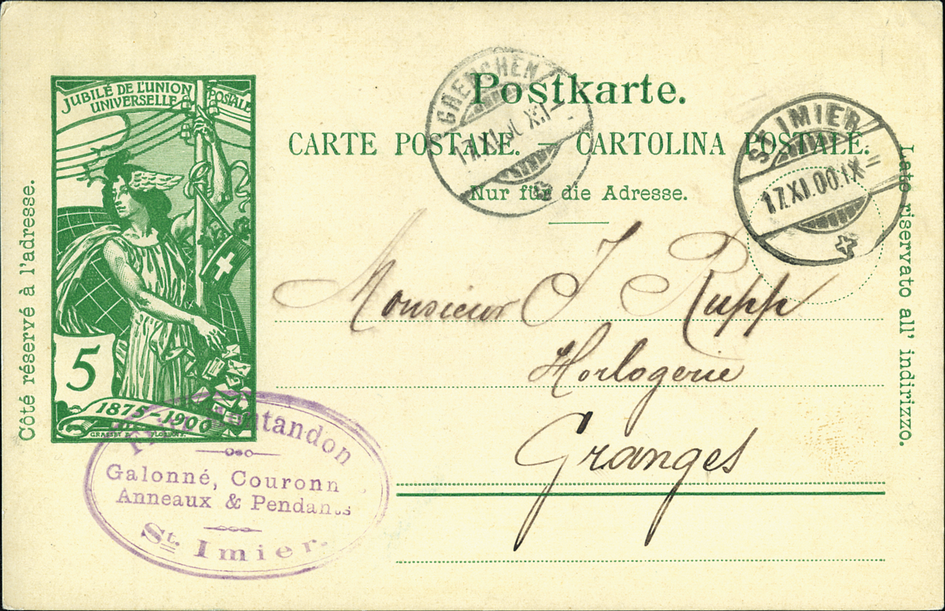 Postkarte.
CARTE POSTALE. — CARTOLINA POSTALE.
Nur für die Adresse.
Côté réservé à l'adresse.
Lato riservato all' indirizzo.
JUBILÉ DE L'UNION
UNIVERSELLE POSTALE
5
1875-1900
GRASSET
GRENCHEN
ST. IMIER
17.XI.00.IX
Monsieur J Rupp
Horlogerie
Granges
Galonné, Couronn
Anneaux & Pendants
St. Imier.